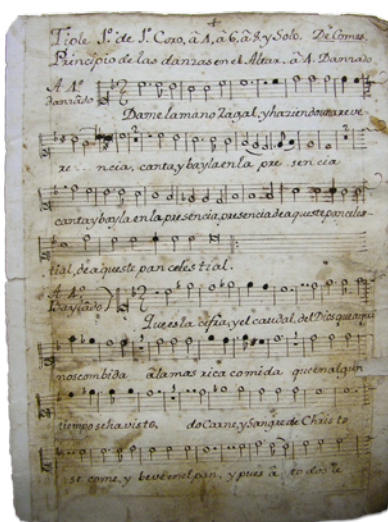 Tiple 1º de 1º Coro, â 4, â 6, â 8 y Solo. De Comes
Principio de las danzas en el Altar. â 4. Danzado
A 4º
danzado
Dame la mano Zagal, y haziendo una reve
re - - ncia, canta y bayla en la pre sencia
canta y bayla en la presencia, presencia de aqueste pan celes-
tial, de aqueste pan celestial.
A 4º
Baylado
Que es la cifra, y el caudal, del Dios que aqui
nos combida â la mas rica comida que en algun
tiempo se ha visto, do Carne, y Sangre de Christo
se come, y beve en el pan, y pues â todos le